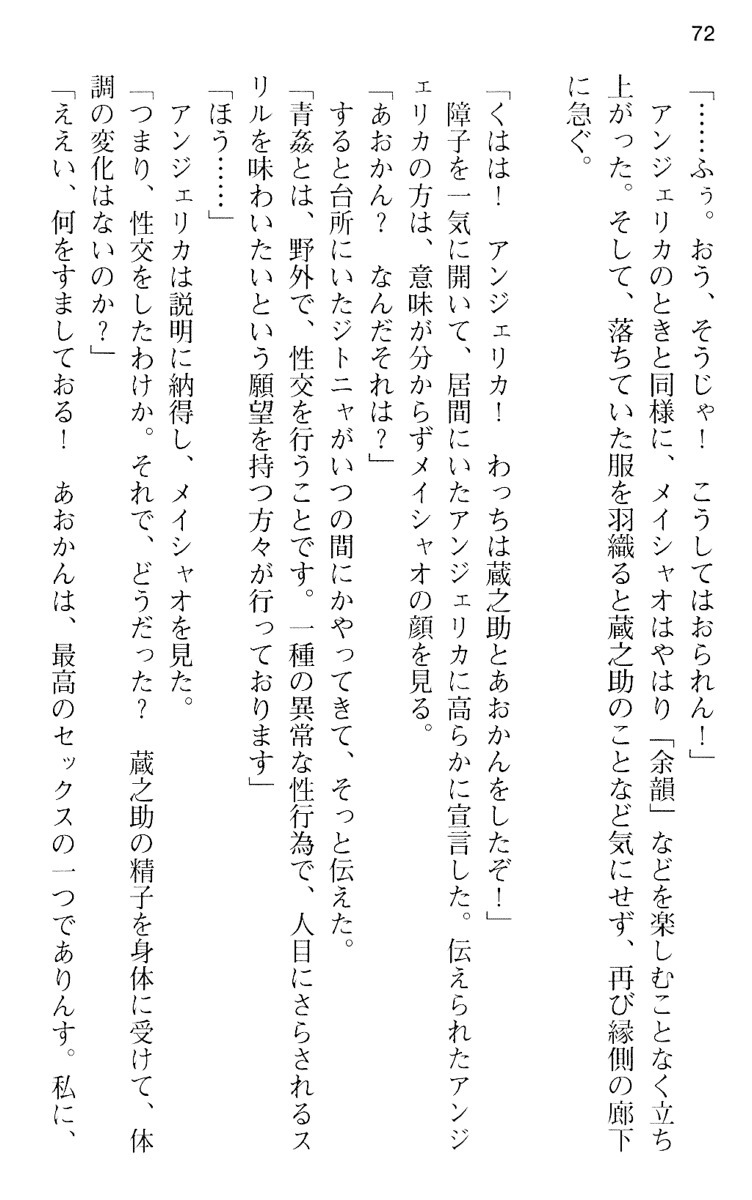 72
「……ふぅ。おう、そうじゃ！　こうしてはおられん！」
　アンジェリカのときと同様に、メイシャオはやはり「余韻」などを楽しむことなく立ち
上がった。そして、落ちていた服を羽織ると蔵之助のことなど気にせず、再び縁側の廊下
に急ぐ。
「くはは！　アンジェリカ！　わっちは蔵之助とあおかんをしたぞ！」
　障子を一気に開いて、居間にいたアンジェリカに高らかに宣言した。伝えられたアンジ
ェリカの方は、意味が分からずメイシャオの顔を見る。
「あおかん？　なんだそれは？」
　すると台所にいたジトニャがいつの間にかやってきて、そっと伝えた。
「青姦とは、野外で、性交を行うことです。一種の異常な性行為で、人目にさらされるス
リルを味わいたいという願望を持つ方々が行っております」
「ほう……」
　アンジェリカは説明に納得し、メイシャオを見た。
「つまり、性交をしたわけか。それで、どうだった？　蔵之助の精子を身体に受けて、体
調の変化はないのか？」
「ええい、何をすましておる！　あおかんは、最高のセックスの一つでありんす。私に、